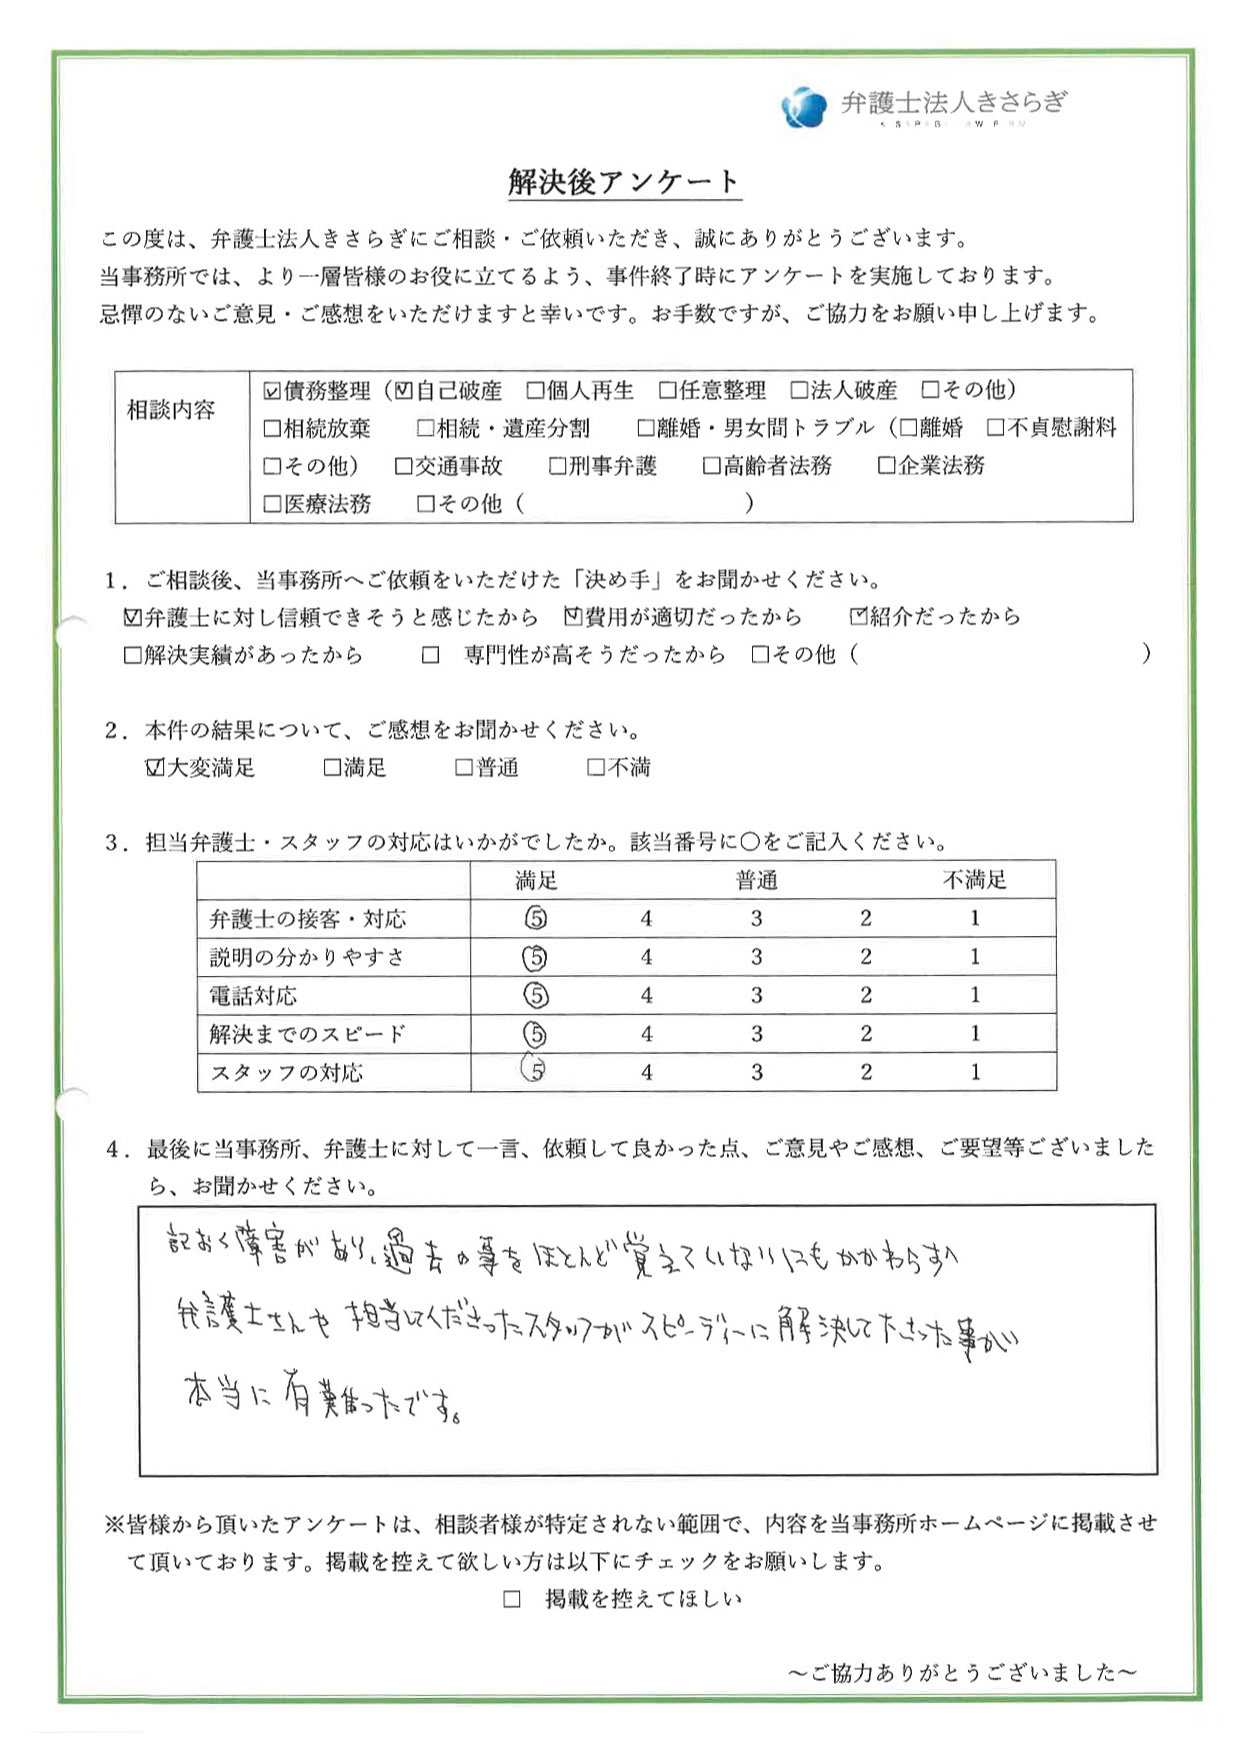 弁護士法人きさらぎ
解決後アンケート
この度は、弁護士法人きさらぎにご相談・ご依頼いただき、誠にありがとうございます。
当事務所では、より一層皆様のお役に立てるよう、事件終了時にアンケートを実施しております。
忌憚のないご意見・ご感想をいただけますと幸いです。お手数ですが、ご協力をお願い申し上げます。
相談内容
☑債務整理（☑自己破産 □個人再生 □任意整理 □法人破産 □その他）
□相続放棄 □相続・遺産分割 □離婚・男女間トラブル（□離婚 □不貞慰謝料
□その他） □交通事故 □刑事弁護 □高齢者法務 □企業法務
□医療法務 □その他（ ）
1．ご相談後、当事務所へご依頼をいただけた「決め手」をお聞かせください。
☑弁護士に対し信頼できそうと感じたから ☑費用が適切だったから ☑紹介だったから
□解決実績があったから □ 専門性が高そうだったから □その他（ ）
2．本件の結果について、ご感想をお聞かせください。
☑大変満足 □満足 □普通 □不満
3．担当弁護士・スタッフの対応はいかがでしたか。該当番号に○をご記入ください。
満足 普通 不満足
弁護士の接客・対応 ⑤ 4 3 2 1
説明の分かりやすさ ⑤ 4 3 2 1
電話対応 ⑤ 4 3 2 1
解決までのスピード ⑤ 4 3 2 1
スタッフの対応 ⑤ 4 3 2 1
4．最後に当事務所、弁護士に対して一言、依頼して良かった点、ご意見やご感想、ご要望等ございました
ら、お聞かせください。
記おく障害があり、過去の事をほとんど覚えていないにもかかわらず
弁護士さんや担当してくださったスタッフがスピーディーに解決して下さった事が
本当に有難かったです。
※皆様から頂いたアンケートは、相談者様が特定されない範囲で、内容を当事務所ホームページに掲載させ
て頂いております。掲載を控えて欲しい方は以下にチェックをお願いします。
□ 掲載を控えてほしい
～ご協力ありがとうございました～